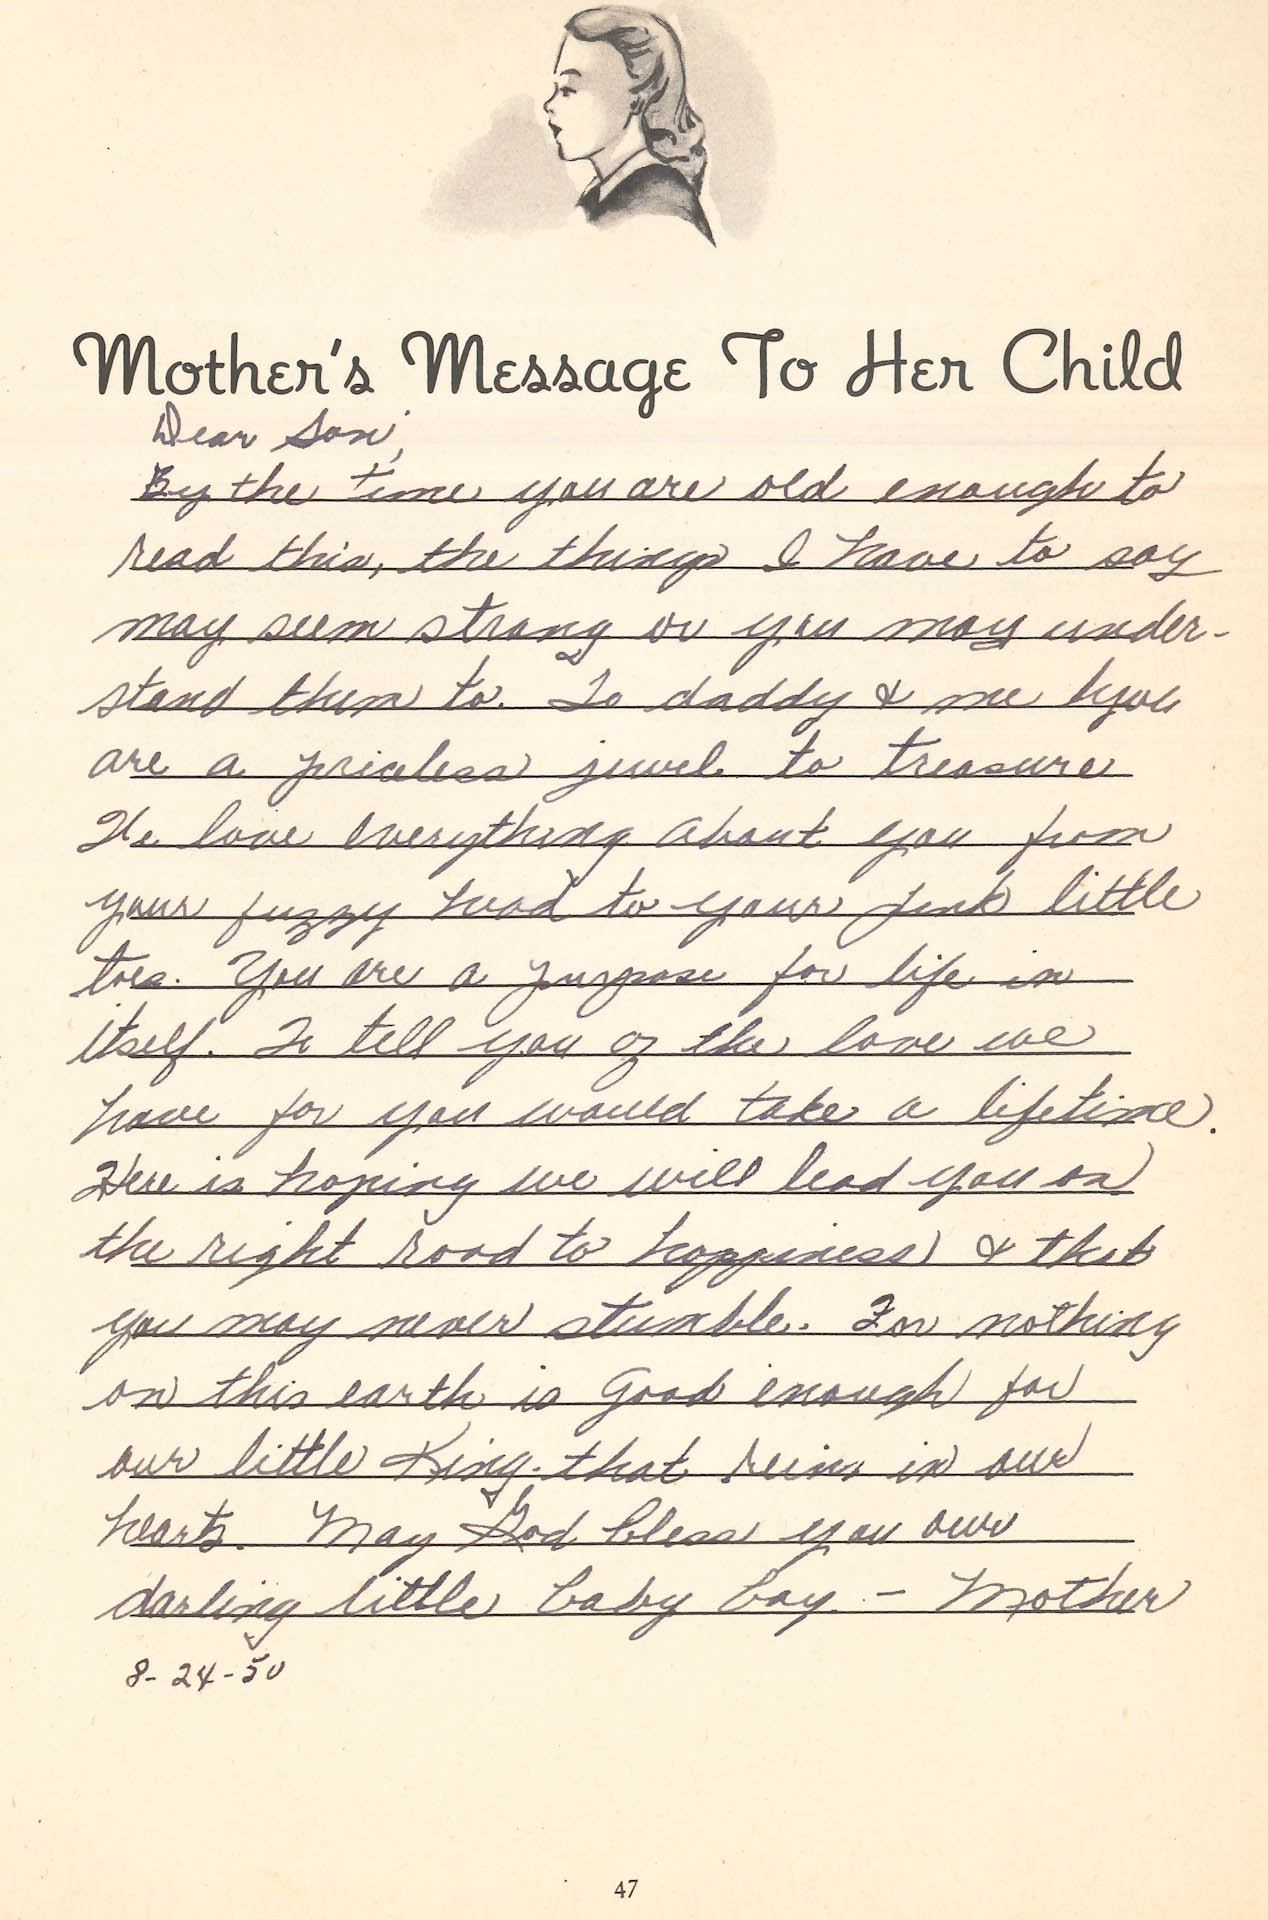 Mother's Message To Her Child
Dear Son,
By the time you are old enough to
read this, the things I have to say
may seem strang or you may under-
stand them to. To daddy & me you
are a priceless jewel to treasure
We love everything about you from
your fuzzy head to your pink little
toes. You are a purpose for life in
itself. To tell you of the love we
have for you would take a lifetime.
Here is hoping we will lead you on
the right road to happiness & that
you may never stumble. For nothing
on this earth is Good enough for
our little King that reins in our
hearts. May God bless you our
darling little baby boy. - Mother
8-24-50
47